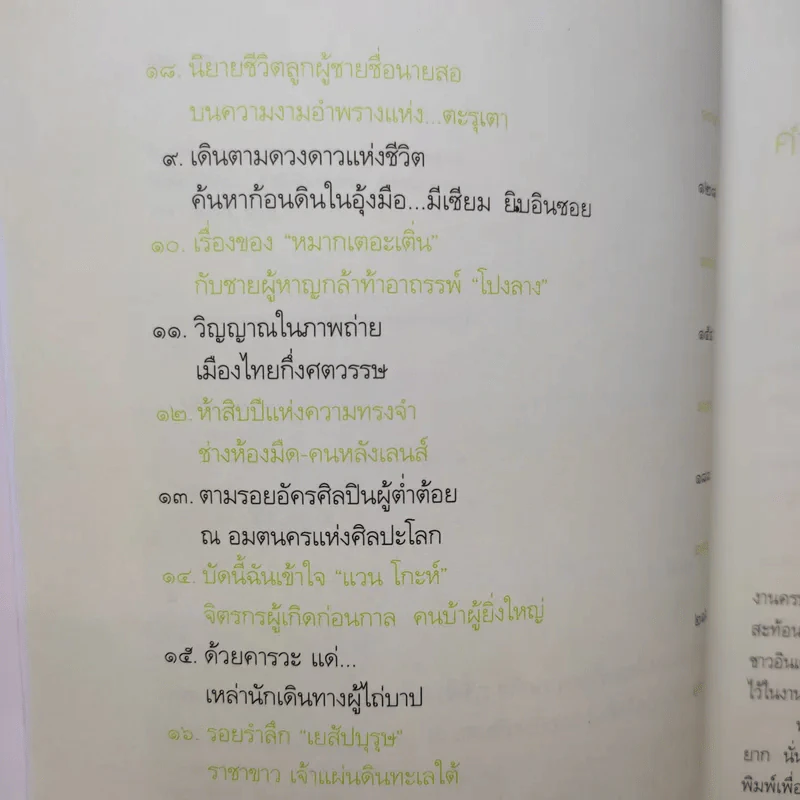 ๑๘. นิยายชีวิตลูกผู้ชายชื่อนายสอ
บนความงามอำพรางแห่ง...ตะรุเตา
๙. เดินตามดวงดาวแห่งชีวิต
ค้นหาก้อนดินในอุ้งมือ...มีเซียม ยิบอินซอย
๑๒๘
๑๐. เรื่องของ "หมากเตอะเติ่น"
กับชายผู้หาญกล้าท้าอาถรรพ์ "โปงลาง"
๑๑. วิญญาณในภาพถ่าย
เมืองไทยกึ่งศตวรรษ
๑๒. ห้าสิบปีแห่งความทรงจำ
ช่างห้องมืด-คนหลังเลนส์
๑๓. ตามรอยอัครศิลปินผู้ต่ำต้อย
ณ อมตนครแห่งศิลปะโลก
๑๔. บัดนี้ฉันเข้าใจ "แวน โกะห์"
จิตรกรผู้เกิดก่อนกาล คนบ้าผู้ยิ่งใหญ่
๑๕. ด้วยคารวะ แด่...
เหล่านักเดินทางผู้ไถ่บาป
๑๖. รอยรำลึก "เยสัปบุรุษ"
ราชาขาว เจ้าแผ่นดินทะเลใต้
งานคร
สะท้อน
ชาวอินเ
ไว้ในงาน
ยาก นั่น
พิมพ์เพื่อ